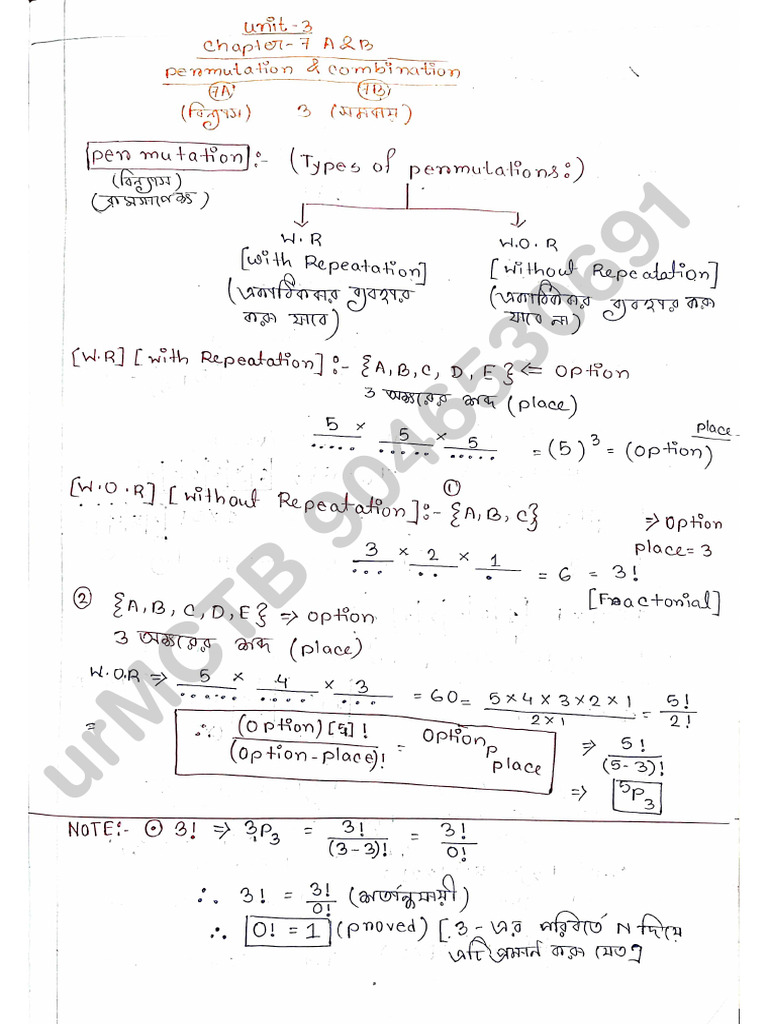 Unit-3
Chapter-7 A&B
Permutation & Combination
7A 7B
(বিন্যাস) ও (সমবায়)
Permutation :- (Types of permutations:)
(বিন্যাস)
W.R W.O.R
[with Repeatation] [without Repeatation]
(একাধিকবার ব্যবহার করা যাবে) (একাধিকবার ব্যবহার করা যাবে না)
[W.R] [with Repeatation] :- {A,B,C, D, E} <= option
3 অক্ষরের শব্দ (place)
5 × 5 × 5 = (5)^3 = (option)^place
[W.O.R] [without Repeatation] :- ① {A, B, C} => option
place = 3
3 × 2 × 1 = 6 = 3!
[Factorial]
② {A,B,C,D,E} => option
3 অক্ষরের শব্দ (place)
W.O.R => 5 × 4 × 3 = 60 = 5×4×3×2×1 / 2×1 = 5!/2!
= ∴ (option)[5]! / (option-place)! = option P place => 5!/(5-3)!
=> 5P3
NOTE:- ⊙ 3! => 3P3 = 3!/(3-3)! = 3!/0!
∴ 3! = 3!/0! (শর্তানুযায়ী)
∴ 0! = 1 (proved) [3-এর পরিবর্তে N দিয়ে
এটি প্রমান করা যেত]
urMCTB 9046530691